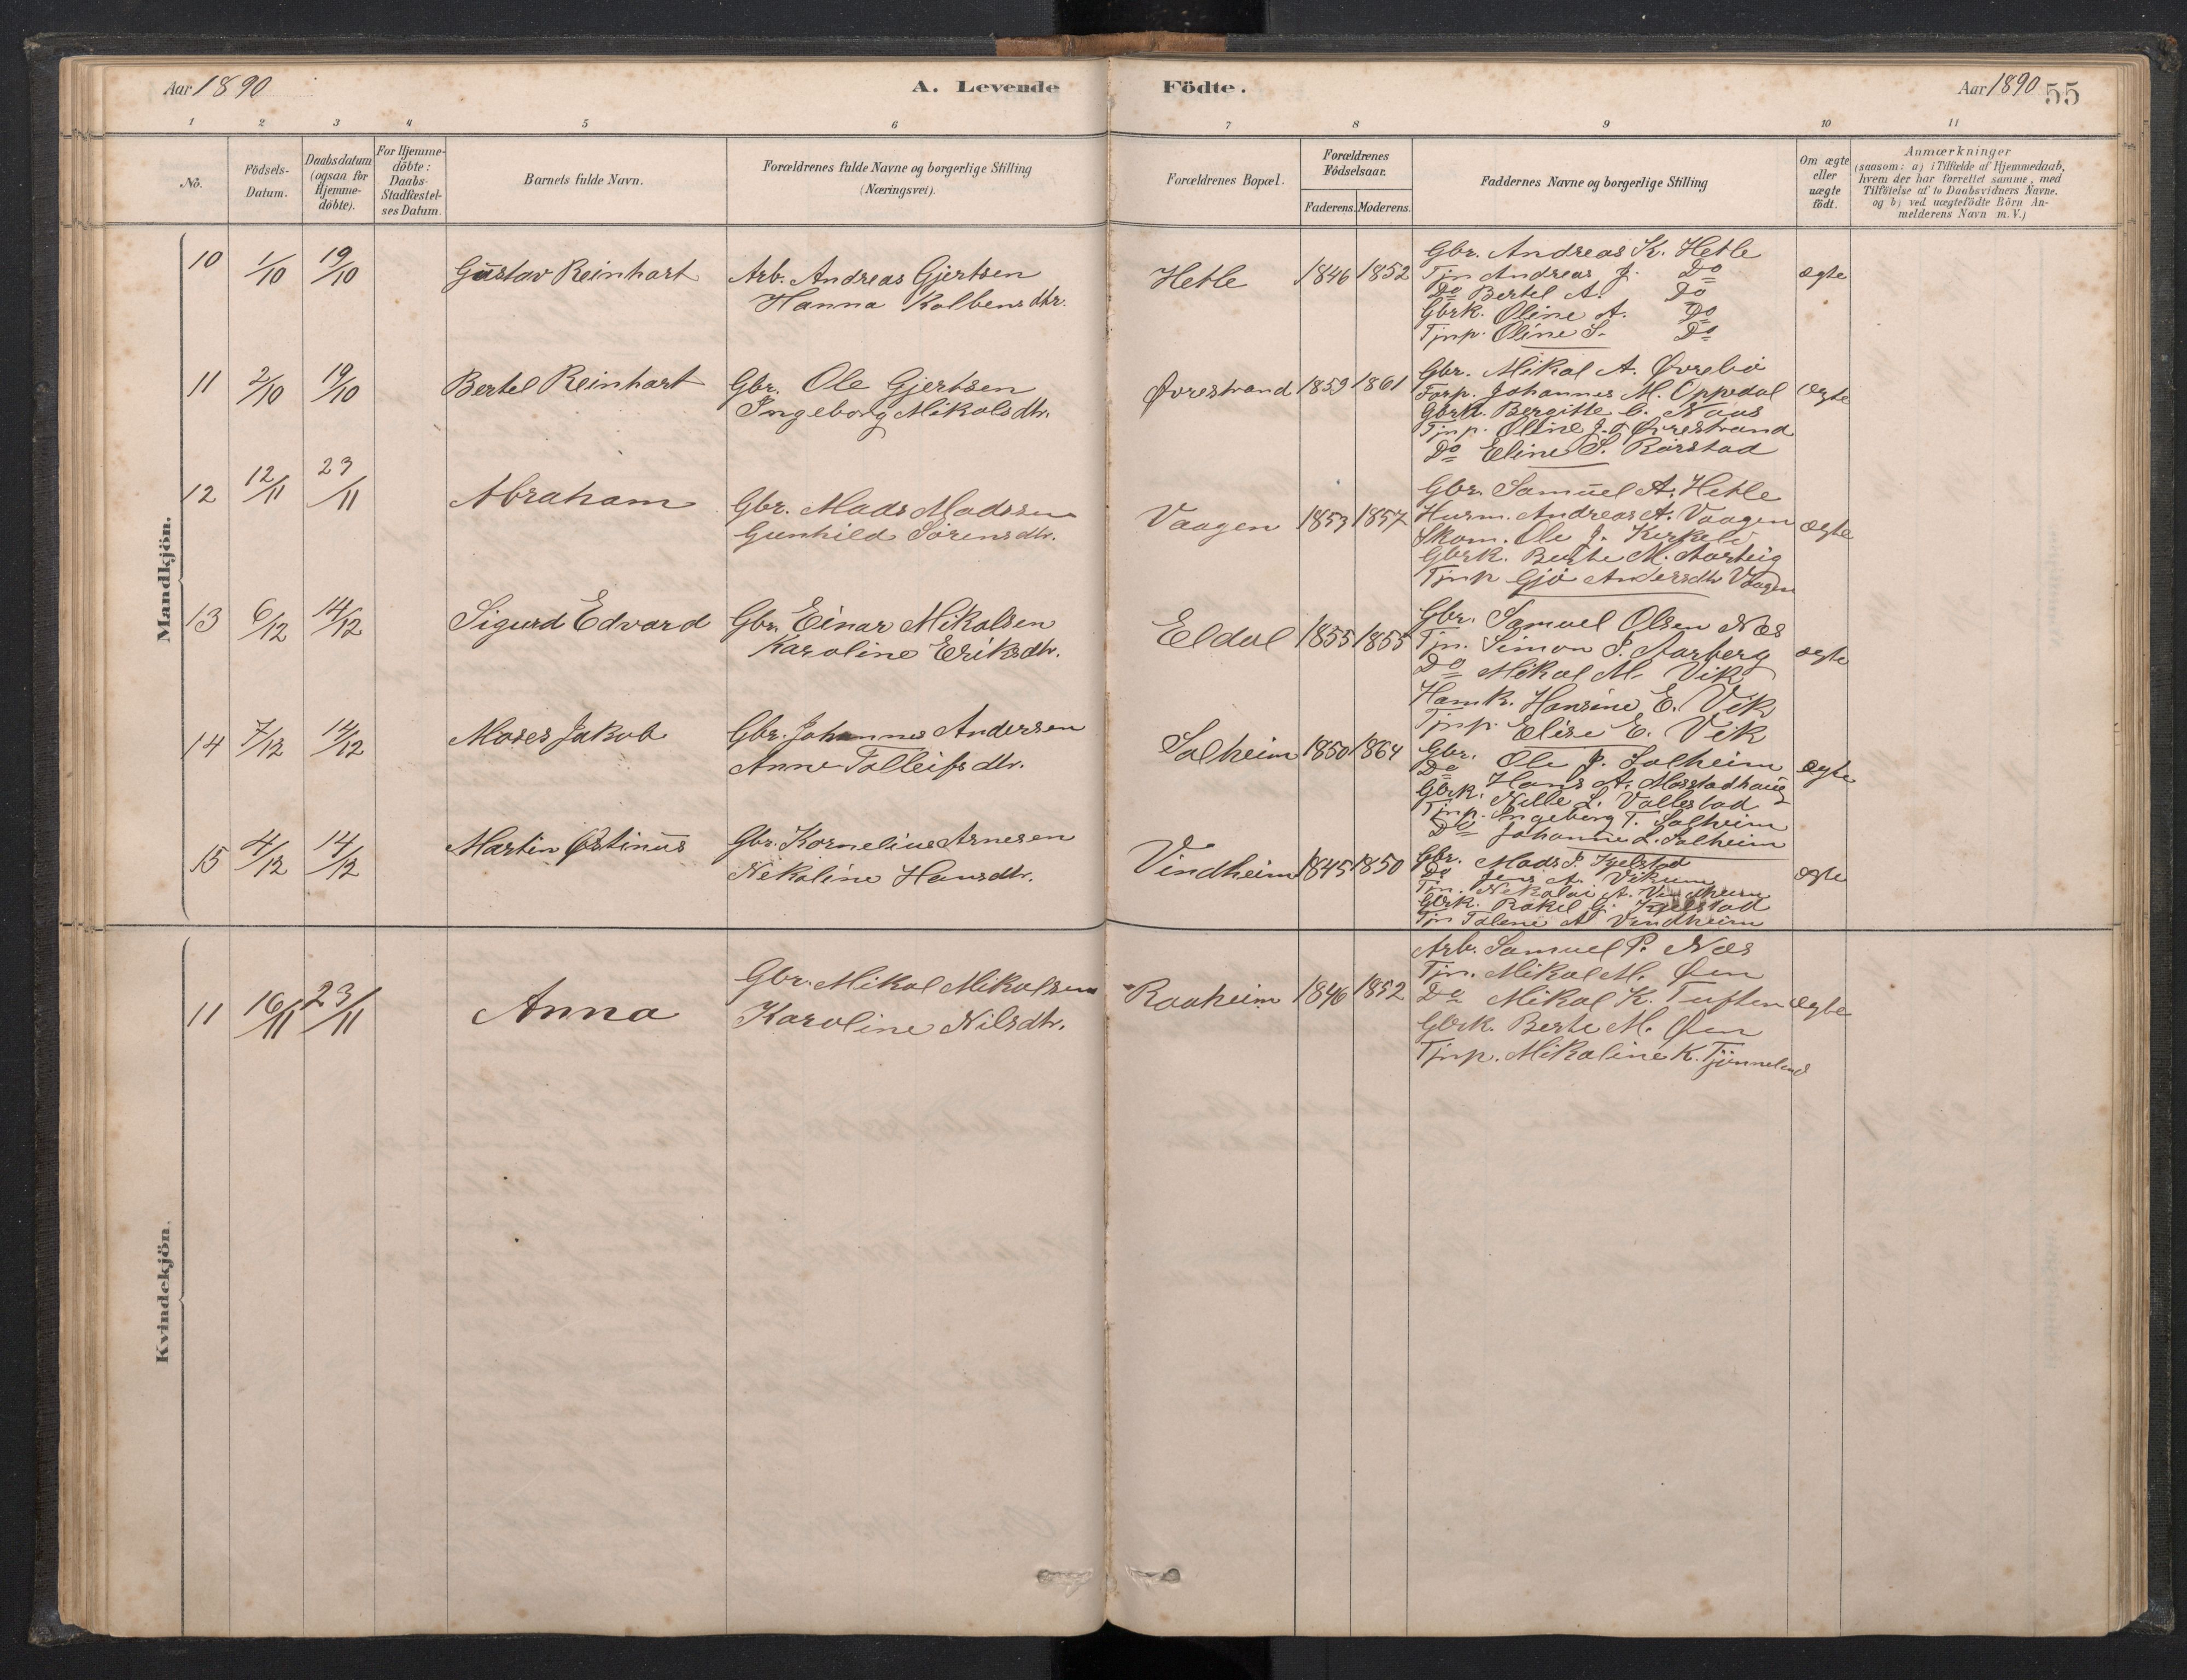 Aar 1890
A. Levende Födte.
Aar 1890
55
1 2 3 4 5 6 7 8 9 10 11
No.
Födsels-Datum.
Daabsdatum (ogsaa for Hjemme-döbte).
For Hjemme-döbte: Daabs-Stadfæstel-ses Datum.
Barnets fulde Navn.
Forældrenes fulde Navne og borgerlige Stilling (Næringsvei).
Forældrenes Bopæl.
Forældrenes Födselsaar.
Faderens. Moderens.
Faddernes Navne og borgerlige Stilling
Om ægte eller uægte födt.
Anmærkninger
(saasom: a) i Tilfælde af Hjemmedaab, hvem der har forrettet samme, med Tilföielse af to Daabsvidners Navne. og b) ved uægtefödte Börn Anmelderens Navn m.V.)
Mandkjön.
10 1/10 19/10 Gustav Reinhart
Arb. Andreas Gjertsen
Hanna Kolbensdtr.
Hetle 1846 1852
Gbr. Andreas K. Hetle
Tjn Andreas J. Do
Do Bertel A. Do
Gbrk. Oline A. Do
Tjnp. Oline S. Do
ægte
11 2/10 19/10 Bertel Reinhart
Gbr. Ole Gjertsen
Ingeborg Mikalsdtr.
Øvrestrand 1859 1861
Gbr. Mikal A. Øvrebø
Forp. Johannes M. Oppedal
Gbrk. Bergitte C. Naas
Tjnp. Oline J. Øvrestrand
Do Eline S. Rørstad
ægte
12 12/11 23/11 Abraham
Gbr. Mads Madssen
Gunhild Sørensdtr.
Vaagen 1853 1857
Gbr. Samuel A. Hetle
Husm. Andreas A. Vaagen
Skom. Ole J. Kirkelø
Gbrk. Berte M. Aarteig
Tjnp Gjø Andersdtr Vaagen
ægte
13 6/12 14/12 Sigurd Edvard
Gbr. Einar Mikalsen
Karoline Eriksdtr.
Eldal 1855 1855
Gbr. Samuel Olsen Næs
Tjn. Simon S. Aarberg
Do Mikal M. Vik
Hamk. Hansine E. Vik
Tjnp. Elise E. Vik
ægte
14 7/12 14/12 Moses Jakob
Gbr. Johannes Andersen
Anne Tolleifsdtr.
Solheim 1850 1864
Gbr. Ole J. Solheim
Do Hans A. Mosstadhaug
Gbrk. Nille L. Vallestad
Tjnp. Ingeborg T. Solheim
Do Johanne L. Solheim
ægte
15 4/12 14/12 Martin Østinus
Gbr. Kornelius Arnesen
Nikoline Hansdtr.
Vindheim 1845 1850
Gbr. Mads P. Kjelstad
Do Jens A. Vikum
Tjn. Nikolai A. Vindheim
Gbrk. Rakel G. Kjelstad
Tjn Talene A Vindheim
ægte
Kvindekjön.
11 16/11 23/11 Anna
Gbr. Mikal Mikalsen
Karoline Nilsdtr.
Raaheim 1846 1852
Arb. Samuel P. Næs
Tjn. Mikal M. Øen
Do Mikal K. Tuften
Gbrk. Berte M. Øen
Tjnp. Mikaline K. Tjønneland
ægte